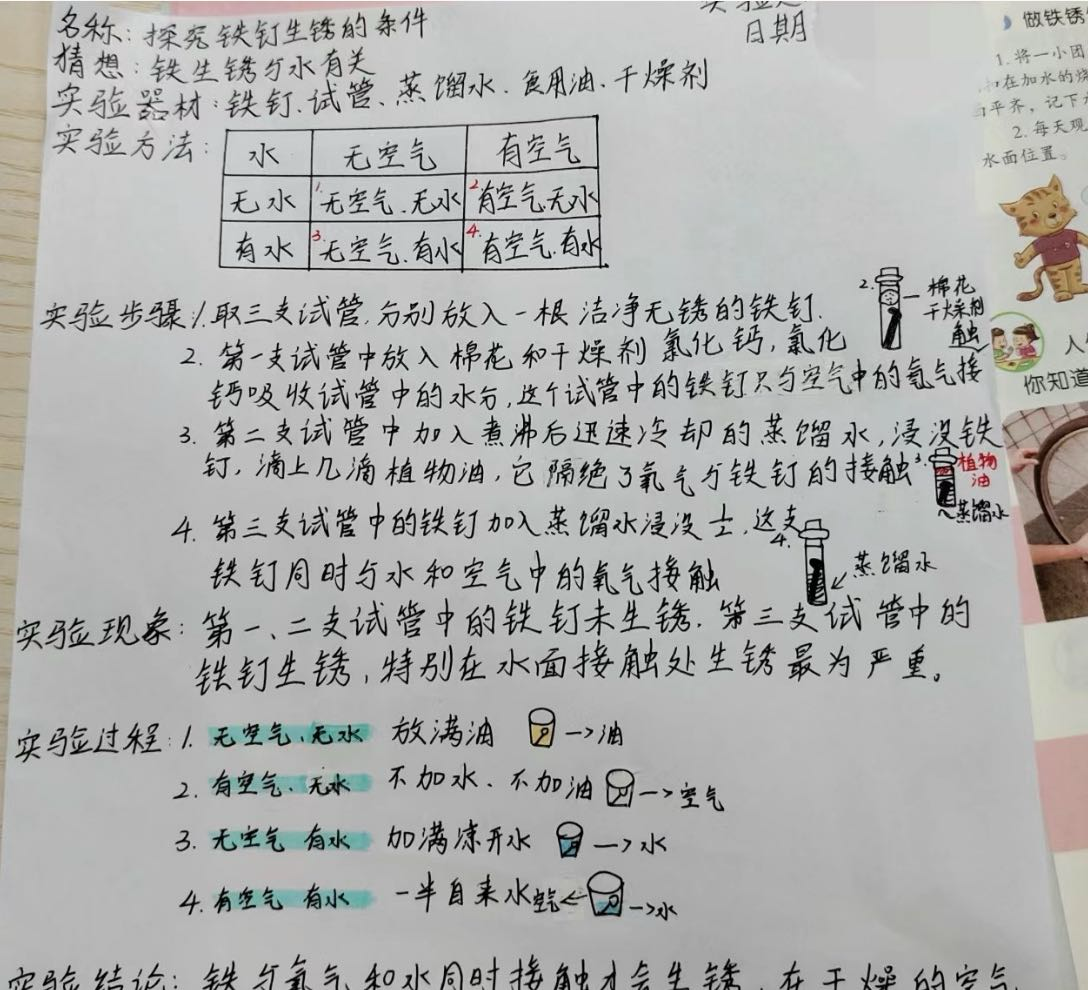 名称：探究铁钉生锈的条件
日期
猜想：铁生锈与水有关
实验器材：铁钉、试管、蒸馏水、食用油、干燥剂
实验方法：
水 无空气 有空气
无水 1.无空气、无水 2.有空气、无水
有水 3.无空气、有水 4.有空气、有水
实验步骤 1.取三支试管，分别放入一根洁净无锈的铁钉.
2. 棉花
干燥剂
2. 第一支试管中放入棉花和干燥剂氯化钙，氯化
钙吸收试管中的水分，这个试管中的铁钉只与空气中的氧气接
触
3. 第二支试管中加入煮沸后迅速冷却的蒸馏水，浸没铁
钉，滴上几滴植物油，它隔绝了氧气与铁钉的接触
3. 植物
油
蒸馏水
4. 第三支试管中的铁钉加入蒸馏水浸没士，这支
铁钉同时与水和空气中的氧气接触
4. 蒸馏水
实验现象：第一、二支试管中的铁钉未生锈.第三支试管中的
铁钉生锈，特别在水面接触处生锈最为严重。
实验过程：1. 无空气、无水 放满油 →油
2. 有空气、无水 不加水、不加油 →空气
3. 无空气 有水 加满凉开水 →水
4. 有空气 有水 一半自来水 空气← →水
实验结论：铁与氧气和水同时接触才会生锈，在干燥的空气
做铁锈
1. 将一小团
扣在加水的烧
面平齐，记下
2. 每天观
水面位置。
人
你知道